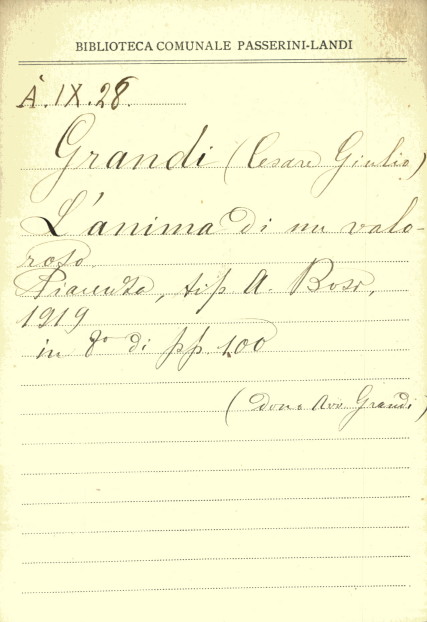 BIBLIOTECA COMUNALE PASSERINI-LANDI
A.IX.28.
Grandi (Cesare Giulio)
L'anima di un valo-
roso.
Piacenza, tip A. Bosi,
1919
in 8° di pp. 100
(dono Avv. Grandi)